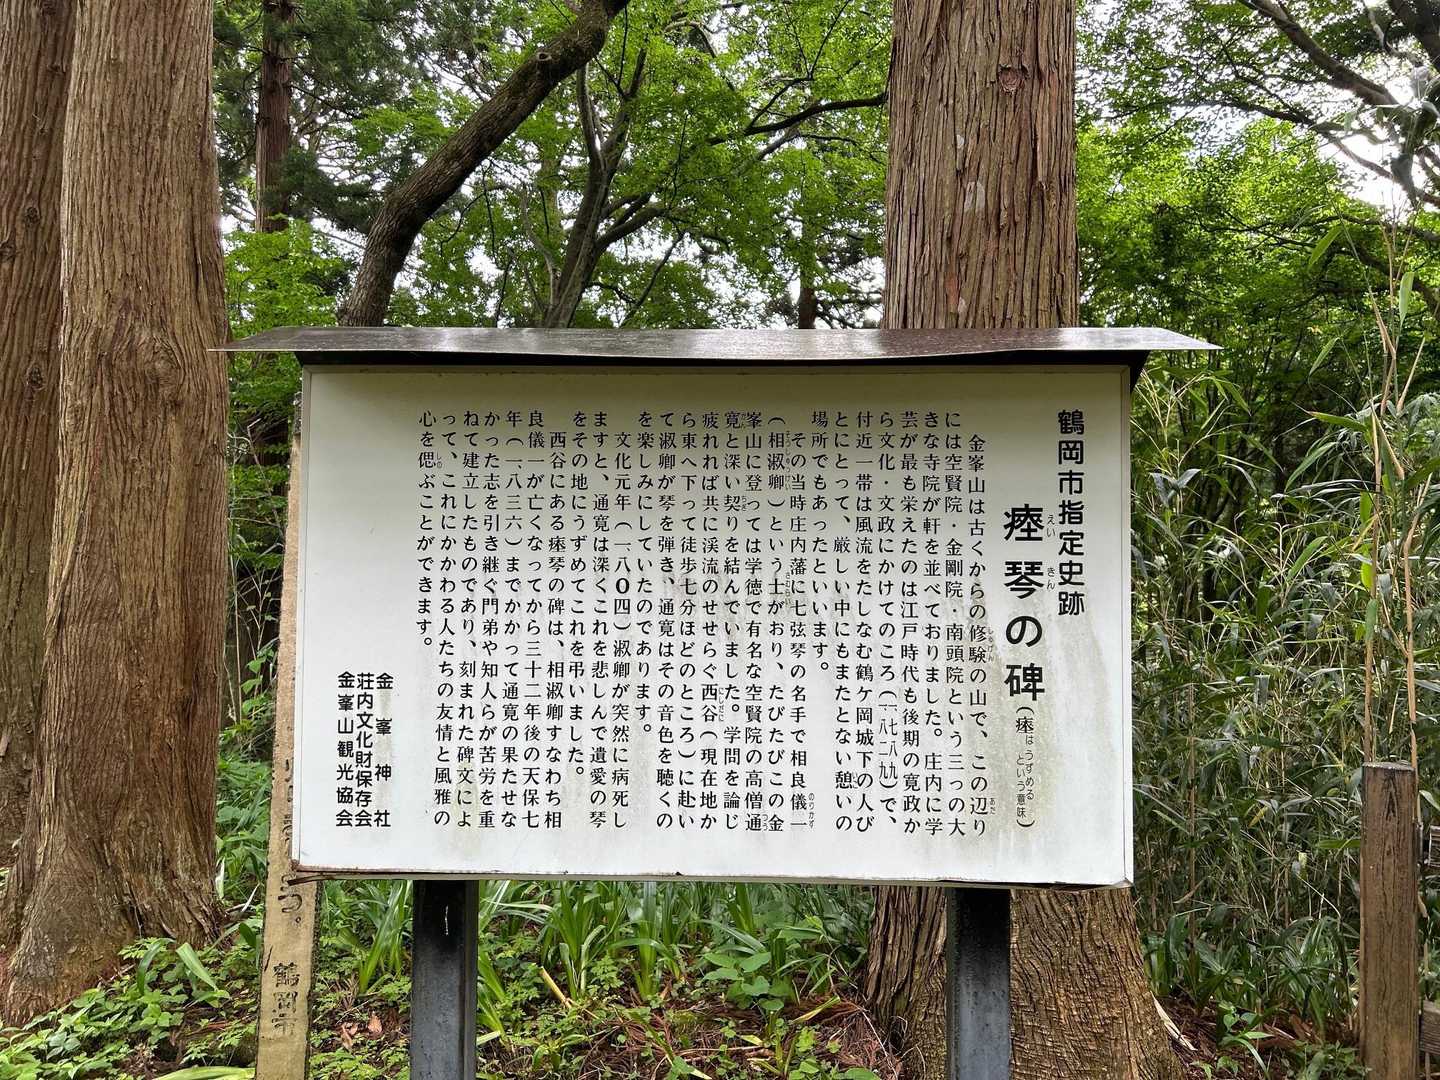 鶴岡市指定史跡
瘞琴の碑(瘞はうずめるという意味)
えいきん
金峯山は古くからの修験の山で、この辺り
には空賢院・金剛院・南頭院という三っの大
きな寺院が軒を並べておりました。庄内に学
芸が最も栄えたのは江戸時代も後期の寛政か
ら文化・文政にかけてのころ(一七八九〜一八二九)で、
付近一帯は風流をたしなむ鶴ケ岡城下の人び
とにとって、厳しい中にもまたとない憩いの
場所でもあったといいます。
その当時庄内藩に七弦琴の名手で相良儀一
(相淑卿)という士がおり、たびたびこの金
峯山に登っては学徳で有名な空賢院の高僧通
寛と深い契りを結んでいました。学問を論じ
疲れれば共に渓流のせせらぐ西谷(現在地か
ら東へ下って徒歩七分ほどのところ)に赴い
て淑卿が琴を弾き、通寛はその音色を聴くの
を楽しみにしていたのであります。
文化元年(一八〇四)淑卿が突然に病死し
ますと、通寛は深くこれを悲しんで遺愛の琴
をその地にうずめてこれを弔いました。
西谷にある瘞琴の碑は、相淑卿すなわち相
良儀一が亡くなってから三十二年後の天保七
年(一八三六)までかかって通寛の果たせな
かった志を引き継ぐ門弟や知人らが苦労を重
ねて建立したものであり、刻まれた碑文によ
って、これにかかわる人たちの友情と風雅の
心を偲ぶことができます。
金峯神社
荘内文化財保存会
金峯山観光協会
鶴岡市